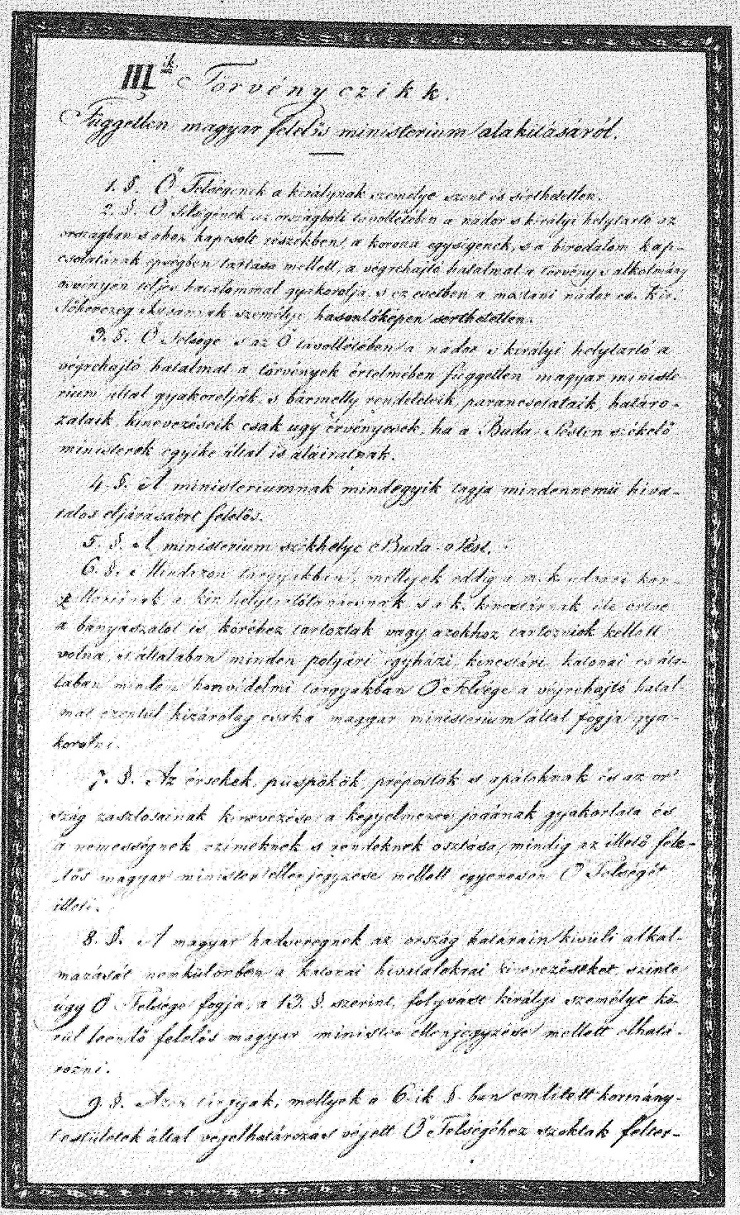 III.ik Törvényczikk.
Független magyar felelős ministerium alakitásáról.
1. §. Ő Felségének a királynak személye szent és sérthetetlen.
2. §. Ő Felségének az országbóli távollétében a nádor s királyi helytartó az
országban s ahoz kapcsolt részekben, a korona egységének, s a birodalom kap-
csolatának épségben tartása mellett, a végrehajtó hatalmat a törvény s alkotmány
ösvényén teljes hatalommal gyakorolja, s ez esetben a mostani nádor cs. kir.
Főherczeg Istvánnak személye hasonlóképen sérthetetlen.
3. §. Ő Felsége s az Ő távollétében a nádor s királyi helytartó a
végrehajtó hatalmat a törvények értelmében független magyar ministe-
rium által gyakorolják, s bármelly rendeleteik, parancsolataik, határo-
zataik, kinevezéseik csak ugy érvényesek, ha a Buda-Pesten székelő
ministerek egyike által is aláiratnak.
4. §. A ministeriumnak mindegyik tagja mindennemü hiva-
talos eljárásaért felelős.
5. §. A ministerium székhelye Buda-Pest.
6. §. Mindazon tárgyakban, mellyek eddig a m. k. udvari kan-
czelláriának, a kir. helytartótanácsnak, s a k. kincstárnak, ide értve
a bányászatot is, köréhez tartoztak, vagy azokhoz tartozniok kellett
volna, s általában minden polgári, egyházi, kincstári, katonai és álta-
lában minden honvédelmi tárgyakban Ő Felsége a végrehajtó hatal-
mat ezentúl kizárólag csak a magyar ministerium által fogja gya-
korolni.
7. §. Az érsekek, püspökök, prépostok s apátoknak és az or-
szág zászlósainak kinevezése, a kegyelmezés jogának gyakorlata és
a nemességnek, czímeknek s rendeknek osztása, mindig az illető fele-
lős magyar minister ellenjegyzése mellett egyenesen Ő Felségét
illeti.
8. §. A magyar hadseregnek az ország határain kivüli alkal-
mazását, nemkülönben a katonai hivatalokrai kinevezéseket szinte
úgy Ő Felsége fogja, a 13. §. szerint, folyvást királyi személye kö-
rül leendő felelős magyar minister ellenjegyzése mellett elhatá-
rozni.
9. §. Azon tárgyak, mellyek a 6-ik §-ban emlitett kormány-
testületek által végelhatározás végett Ő Felségéhez szoktak felter-